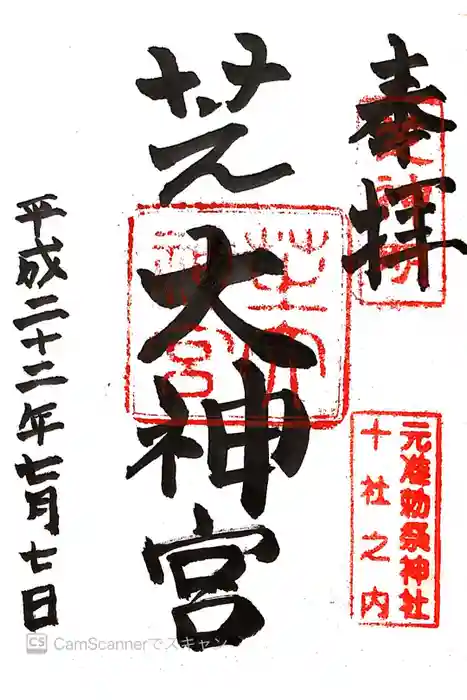 奉拝
元准勅祭神社
十社之内
芝大神宮
芝大神宮
平成二十二年七月七日
CS CamScannerでスキャン